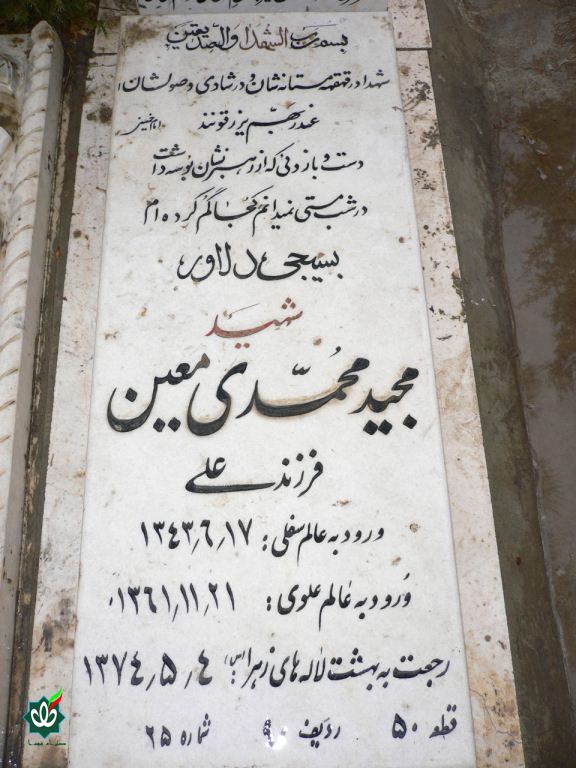 بسم رب الشهدا و الصدیقین
شهدا در قهقهه مستانه‌شان و در شادی وصولشان
عند ربهم یرزقونند امام خمینی
دست و بازوئی که از رهبر نشان بوسه داشت
در شب مستی نمیدانم کجا گم کرده ام
بسیجی دلاور
شهید
مجید محمدی معین
فرزند علی
ورود به عالم سفلی: ۱۳۴۳٫۶٫۱۷
ورود به عالم علوی: ۱۳۶۱٫۱۱٫۲۱
رجعت به بهشت لاله های زهرا(س): ۱۳۷۴٫۵٫۴
قطعه ۵۰ ردیف ۹۰ شماره ۲۵